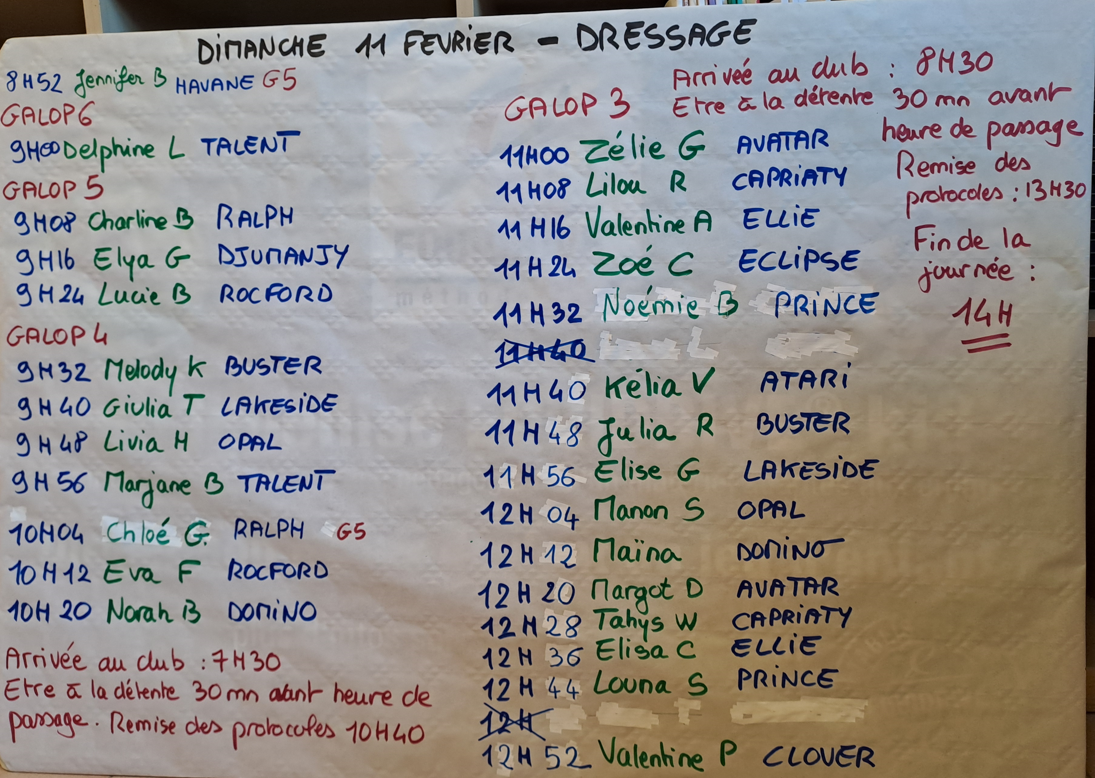 DIMANCHE 11 FEVRIER - DRESSAGE
8H52 Jennifer B HAVANE G5
GALOP 6
9H00 Delphine L TALENT
GALOP 5
9H08 Charline B RALPH
9H16 Elya G DJUMANJY
9H24 Lucie B ROCFORD
GALOP 4
9H32 Melody K BUSTER
9H40 Giulia T LAKESIDE
9H48 Livia H OPAL
9H56 Marjane B TALENT
10H04 Chloé G. RALPH G5
10H12 Eva F ROCFORD
10H20 Norah B DOMINO
Arrivée au club : 7H30
Etre à la détente 30 mn avant heure de
passage. Remise des protocoles 10H40
GALOP 3
11H00 Zélie G AVATAR
11H08 Lilou R CAPRIATY
11H16 Valentine A ELLIE
11H24 Zoé C ECLIPSE
11H32 Noémie B PRINCE
11H40
11H40 Kélia V ATARI
11H48 Julia R BUSTER
11H56 Elise G LAKESIDE
12H04 Manon S OPAL
12H12 Maïna DOMINO
12H20 Margot D AVATAR
12H28 Tahys W CAPRIATY
12H36 Elisa C ELLIE
12H44 Louna S PRINCE
12H
12H52 Valentine P CLOVER
Arrivée au club : 8H30
Etre à la détente 30 mn avant
heure de passage
Remise des
protocoles : 13H30
Fin de la
journée :
14H